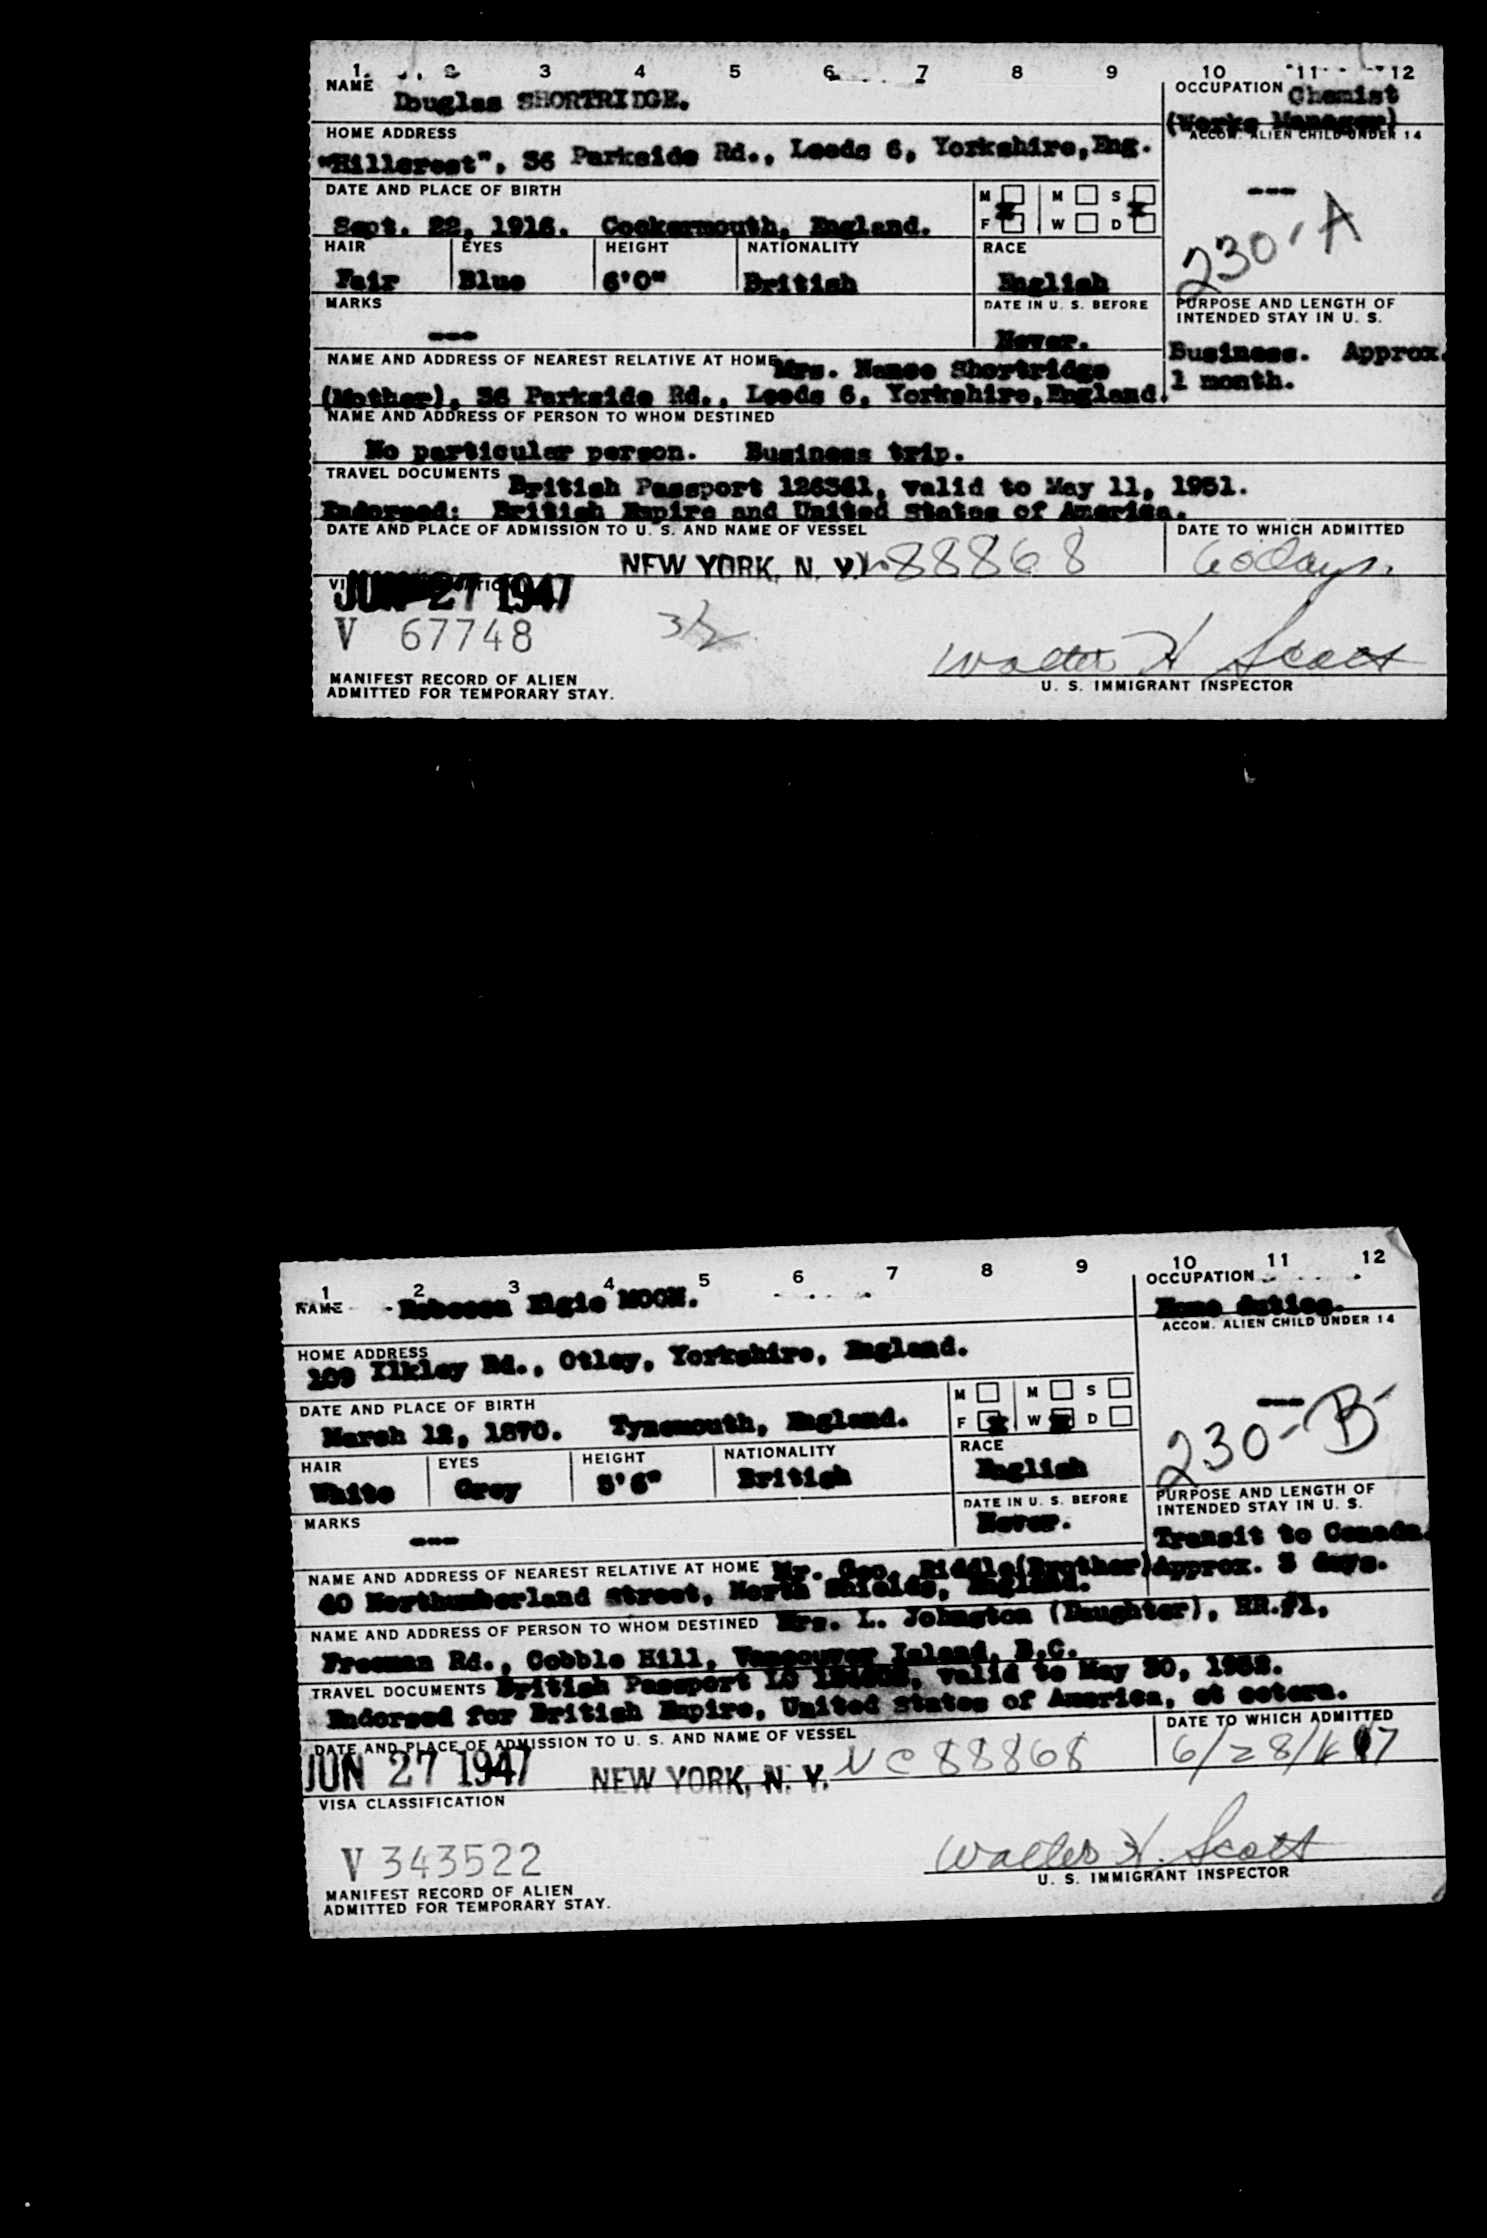 1 2 3 4 5 6 7 8 9 10 11 12
NAME Douglas SHORTRIDGE.
OCCUPATION Chemist
(Works Manager)
ACCOM. ALIEN CHILD UNDER 14
HOME ADDRESS
"Hillcrest", 36 Parkside Rd., Leeds 6, Yorkshire, Eng.
DATE AND PLACE OF BIRTH
M M S
---
Sept. 22, 1916. Cockermouth, England.
F W D
230-A
HAIR EYES HEIGHT NATIONALITY RACE
Fair Blue 6'0" British English
MARKS
DATE IN U. S. BEFORE
PURPOSE AND LENGTH OF
INTENDED STAY IN U. S.
---
Never.
NAME AND ADDRESS OF NEAREST RELATIVE AT HOME Mrs. Shortridge
Business. Approx.
1 month.
(Mother), 36 Parkside Rd., Leeds 6, Yorkshire, England.
NAME AND ADDRESS OF PERSON TO WHOM DESTINED
No particular person. Business trip.
TRAVEL DOCUMENTS British Passport 126361, valid to May 11, 1951.
Endorsed: British Empire and United States of America.
DATE AND PLACE OF ADMISSION TO U. S. AND NAME OF VESSEL
DATE TO WHICH ADMITTED
NEW YORK, N. Y. 88868
60 days.
JUN 27 1947
V 67748
Walter H Scott
MANIFEST RECORD OF ALIEN
ADMITTED FOR TEMPORARY STAY.
U. S. IMMIGRANT INSPECTOR
1 2 3 4 5 6 7 8 9 10 11 12
NAME Rebecca Elgie MOON.
OCCUPATION
Home duties.
ACCOM. ALIEN CHILD UNDER 14
HOME ADDRESS
109 Ilkley Rd., Otley, Yorkshire, England.
DATE AND PLACE OF BIRTH
M M S
---
March 12, 1870. Tynemouth, England.
F W D
230-B
HAIR EYES HEIGHT NATIONALITY RACE
White Grey 5'6" British English
MARKS
DATE IN U. S. BEFORE
PURPOSE AND LENGTH OF
INTENDED STAY IN U. S.
---
Never.
Transit to Canada.
NAME AND ADDRESS OF NEAREST RELATIVE AT HOME Mr. Geo. Riddle (Brother)
Approx. 3 days.
40 Northumberland Street, North Shields, England.
NAME AND ADDRESS OF PERSON TO WHOM DESTINED Mrs. L. Johnston (Daughter), RR.#1,
Freeman Rd., Cobble Hill, Vancouver Island, B.C.
TRAVEL DOCUMENTS British Passport valid to May 30, 1952.
Endorsed for British Empire, United States of America, et cetera.
DATE AND PLACE OF ADMISSION TO U. S. AND NAME OF VESSEL
DATE TO WHICH ADMITTED
JUN 27 1947 NEW YORK, N. Y. NC 88868
6/28/47
VISA CLASSIFICATION
V 343522
Walter H. Scott
MANIFEST RECORD OF ALIEN
ADMITTED FOR TEMPORARY STAY.
U. S. IMMIGRANT INSPECTOR